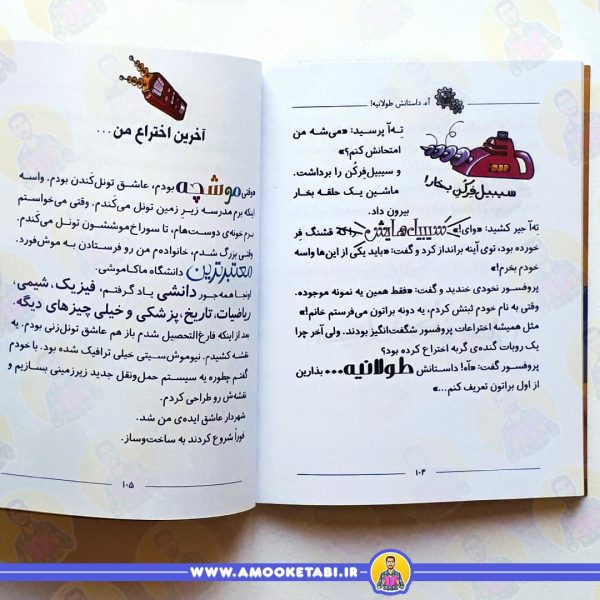 آه، داستانش طولانیه!
تِه‌آ پرسید: «می‌شه من
امتحانش کنم؟»
و سیبیل‌فِرکُن را برداشت.
ماشین یک حلقه بخار
بیرون داد.
سیبیل فِرکُن بخار!
تِه‌آ جیر کشید: «وای!» سیبیل‌هایش را که قشنگ فِر
خورده بود، توی آینه برانداز کرد و گفت: «باید یکی از این‌ها واسه
خودم بخرم!»
پروفسور نخودی خندید و گفت: «فقط همین یه نمونه موجوده.
وقتی به نام خودم ثبتش کردم، یه دونه براتون می‌فرستم خانم!»
مثل همیشه اختراعات پروفسور شگفت‌انگیز بودند. ولی آخر چرا
یک روبات گنده‌ی گربه اختراع کرده بود؟
پروفسور گفت: «آه! داستانش طولانیه... بذارین
از اول براتون تعریف کنم...»
۱۰۴
آخرین اختراع من...
«وقتی موشچه بودم، عاشق تونل‌کَندن بودم. واسه
اینکه برم مدرسه زیر زمین تونل می‌کَندم. وقتی می‌خواستم
برم خونه‌ی دوست‌هام، تا سوراخ‌موششون تونل می‌کندم.
وقتی بزرگ شدم، خانواده‌م من رو فرستادن به موش‌فورد.
معتبرترین دانشگاه ماکاموشی.
اونجا همه‌جور دانشی یاد گرفتم، فیزیک، شیمی،
ریاضیات، تاریخ، پزشکی و خیلی چیزهای دیگه.
بعد از اینکه فارغ‌التحصیل شدم باز هم عاشق تونل‌زنی بودم. یه
نقشه کشیدم. نیوموش‌سیتی خیلی ترافیک شده بود. با خودم
گفتم چطوره یه سیستم حمل‌ونقل جدید زیرزمینی بسازیم و
نقشه‌ش رو طراحی کردم.
شهردار عاشق ایده‌ی من شد.
فوراً شروع کردند به ساخت‌وساز.
۱۰۵
WWW.AMOOKETABI.IR